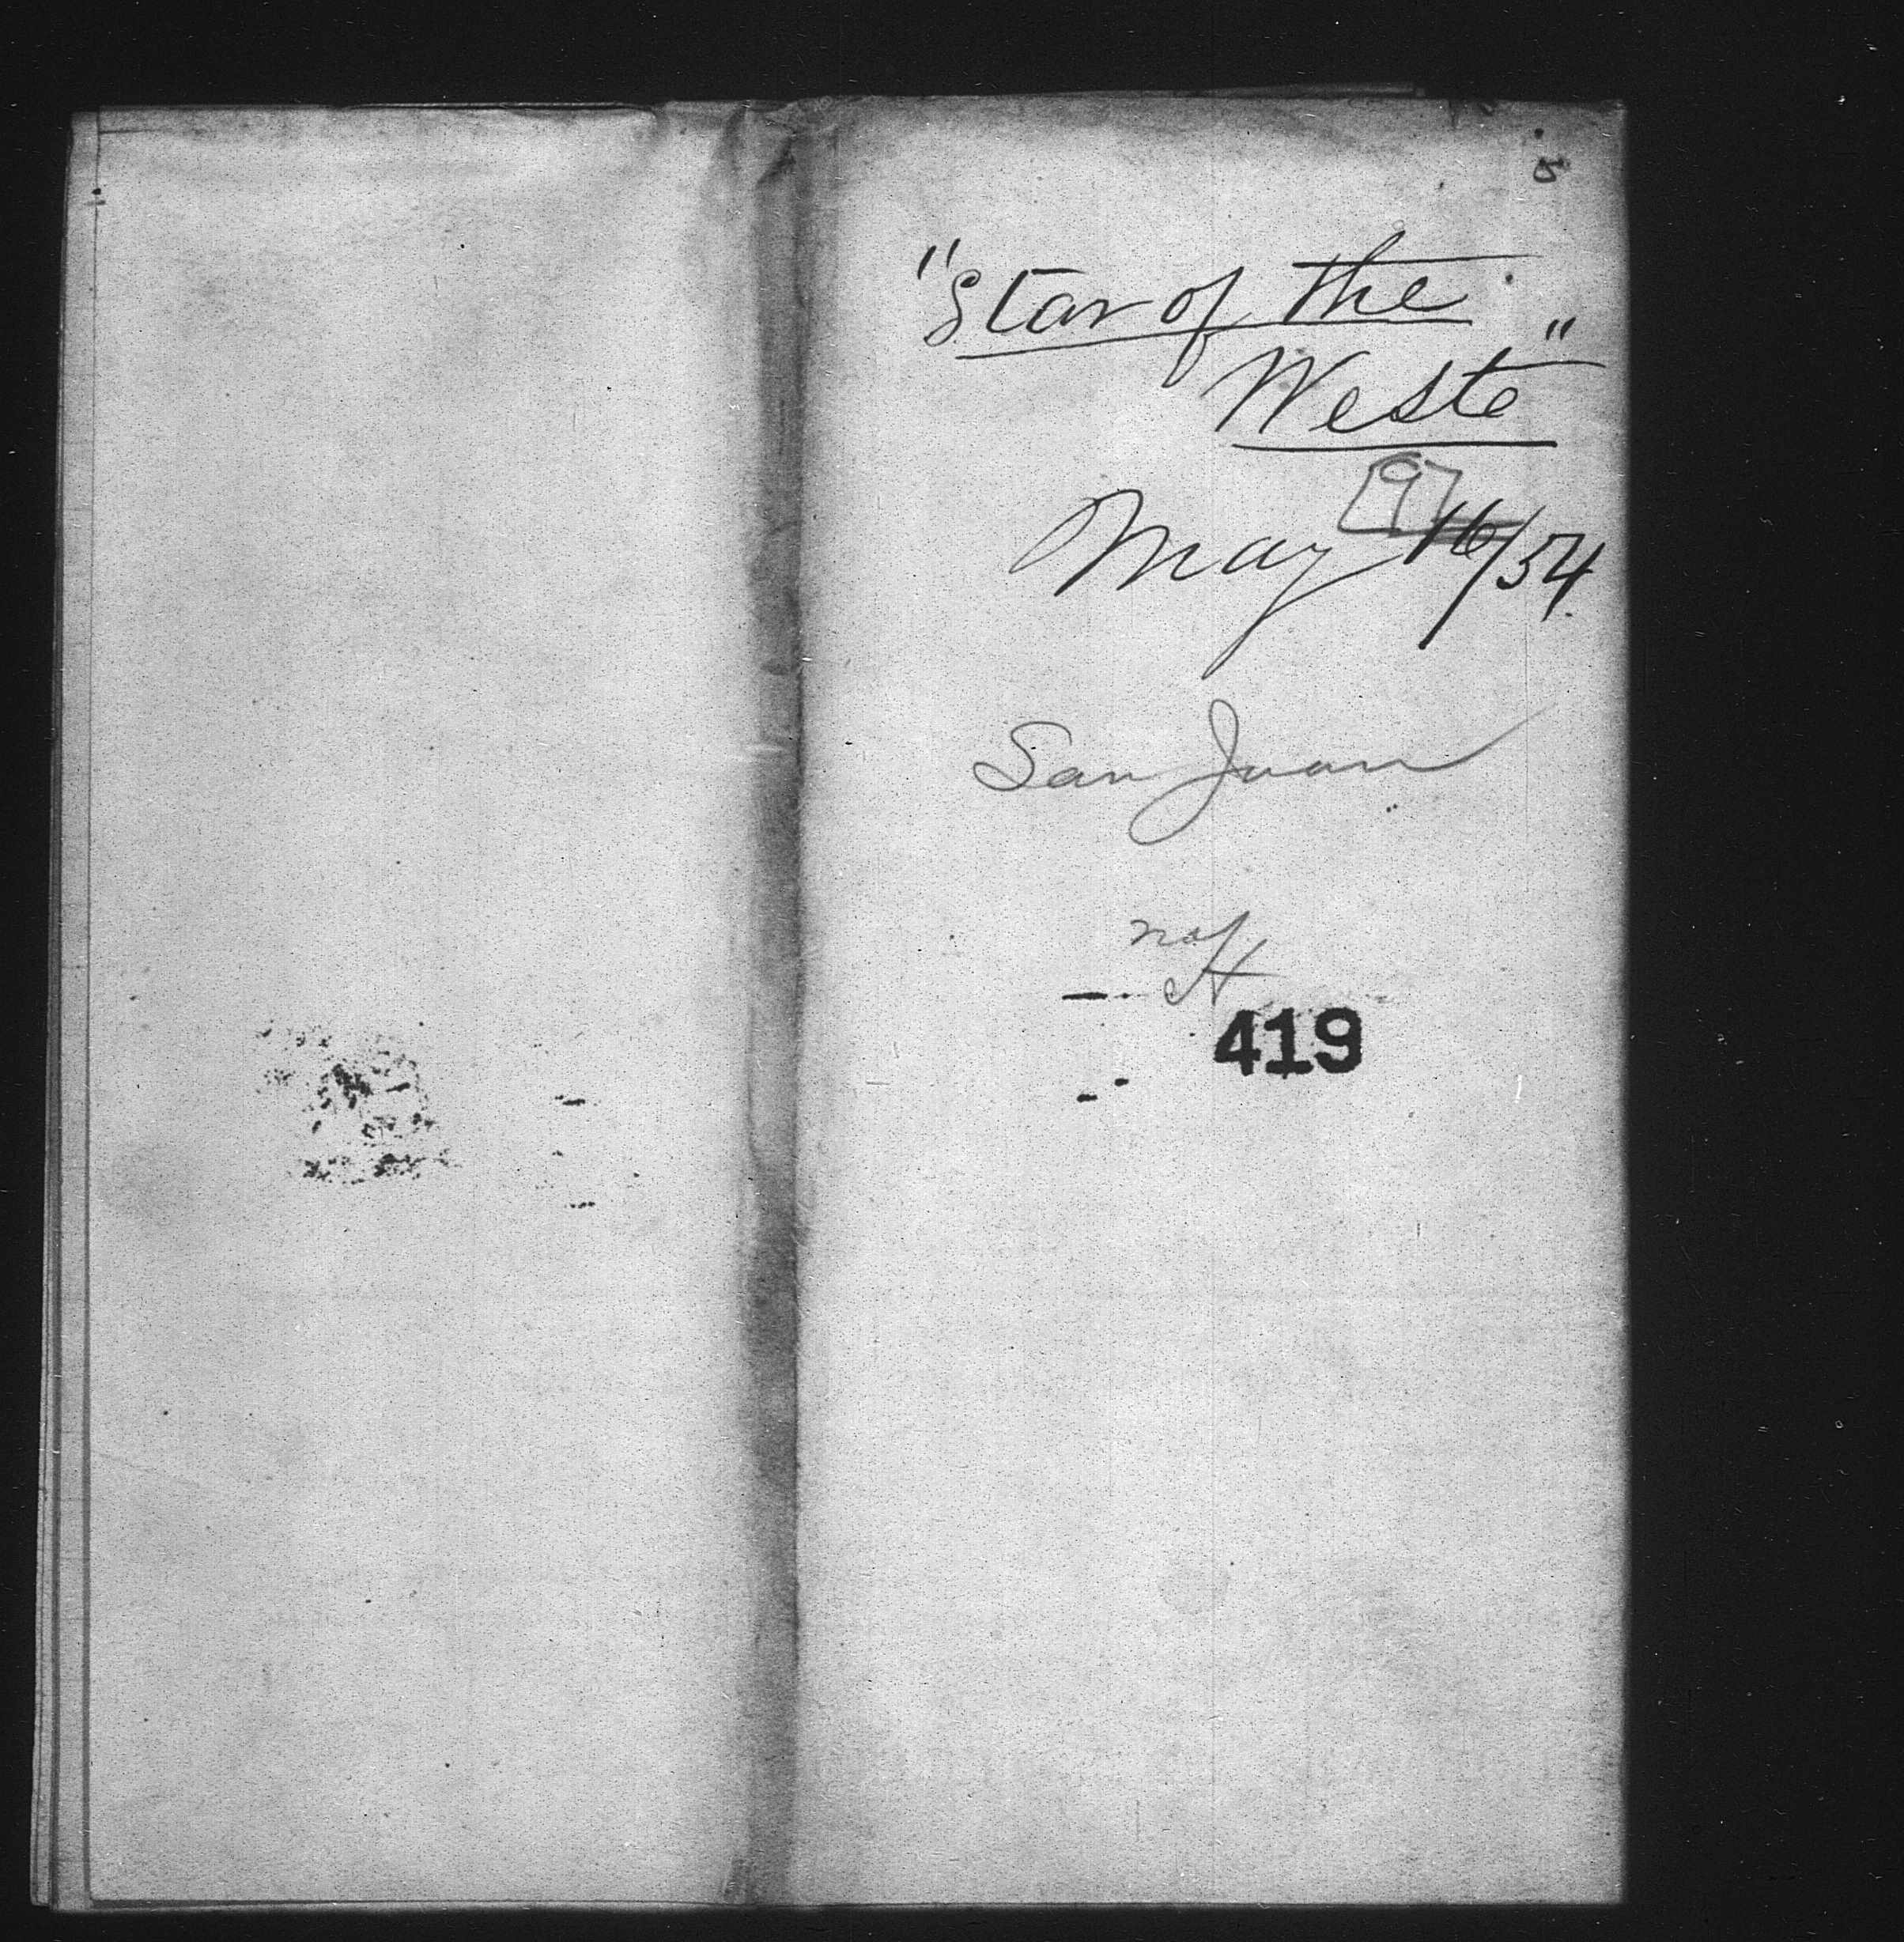 "Star of the
West"
May [9] 16/54.
San Juan
419